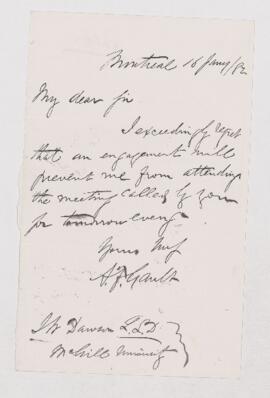 Montreal 18 Jany/82
My dear Sir
I exceedingly regret
that an engagement will
prevent me from attending
the meeting called by you
for tomorrow eveng
Yours truly
A F Gault
J W Dawson L.L.D
McGill University